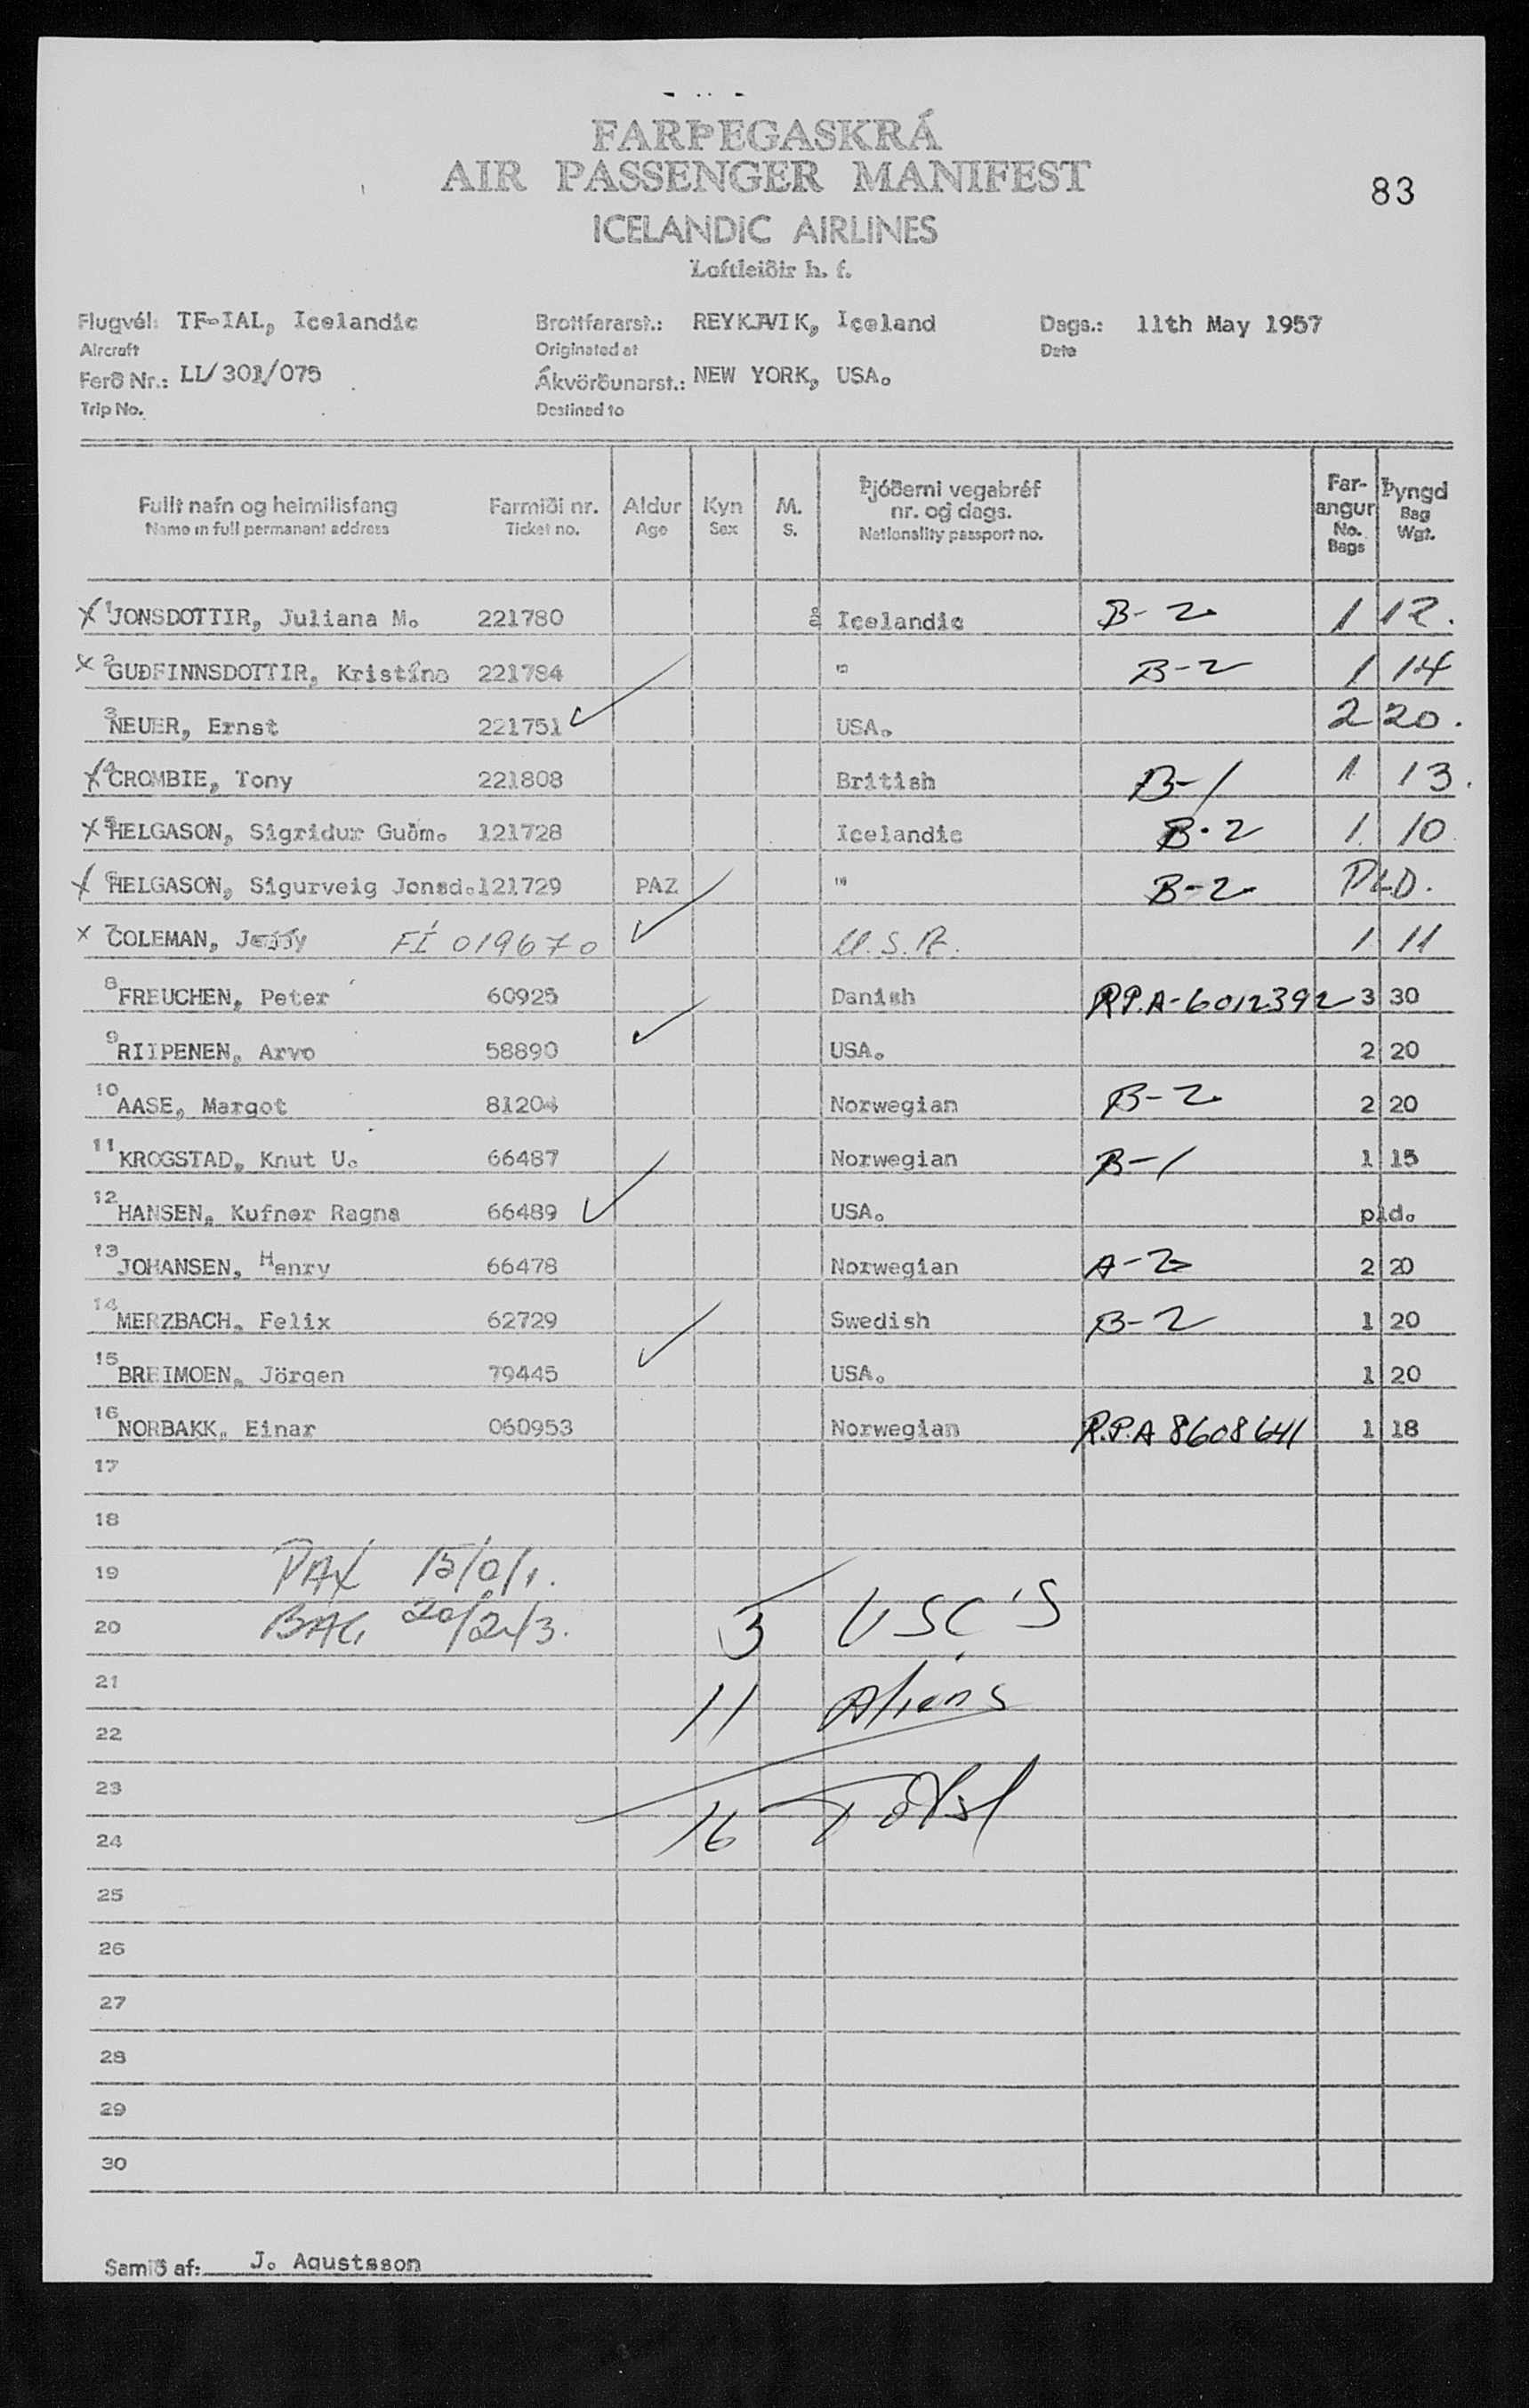 FARÞEGASKRÁ
AIR PASSENGER MANIFEST
83
ICELANDIC AIRLINES
Loftleiðir h. f.
Flugvél: TF-IAL, Icelandic Brottfararst.: REYKJAVIK, Iceland Dags.: 11th May 1957
Aircraft Originated at Date
Ferð Nr.: LL/301/075 Ákvörðunarst.: NEW YORK, USA.
Trip No. Destined to
Fullt nafn og heimilisfang Farmiði nr. Aldur Kyn M. Þjóðerni vegabréf nr. og dags. Far-angur Þyngd
Name in full permanent address Ticket no. Age Sex S. Nationality passport no. No. Bags Bag Wgt.
X 1 JONSDOTTIR, Juliana M. 221780 å Icelandic B-2 1 12.
X 2 GUÐFINNSDOTTIR, Kristína 221784 " B-2 1 14
3 NEUER, Ernst 221751 ✓ USA. 2 20.
X 4 CROMBIE, Tony 221808 British B-1 1 13.
X 5 HELGASON, Sigridur Guðm. 121728 Icelandic B-2 1 10
X 6 HELGASON, Sigurveig Jonsd. 121729 PAZ " B-2 PLD.
X 7 COLEMAN, FÍ 019670 ✓ U.S.A. 1 11
8 FREUCHEN, Peter 60925 Danish R.P.A-6012392 3 30
9 RIIPENEN, Arvo 58890 ✓ USA. 2 20
10 AASE, Margot 81204 Norwegian B-2 2 20
11 KROGSTAD, Knut U. 66487 Norwegian B-1 1 15
12 HANSEN, Kufner Ragna 66489 ✓ USA. pld.
13 JOHANSEN, Henry 66478 Norwegian A-2 2 20
14 MERZBACH, Felix 62729 Swedish B-2 1 20
15 BREIMOEN, Jörgen 79445 ✓ USA. 1 20
16 NORBAKK, Einar 060953 Norwegian R.P.A 8608641 1 18
17
18
19 PAX 15/0/1.
20 BAG 20/243. 5 USC'S
21 11 Aliens
22
23
24 16 Total
25
26
27
28
29
30
Samið af: J. Agustsson